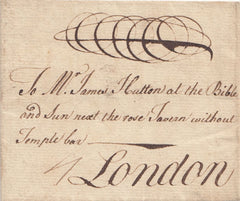 To Mr James Hutton at the Bible
and Sun next the rose Tavern without
Temple bar
London